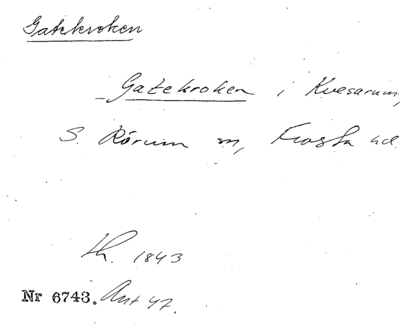 Gatekroken
Gatekroken i Kvesarum,
S. Rörum sn, Frosta hd.
th. 1843
Nr 6743. Ant 47.